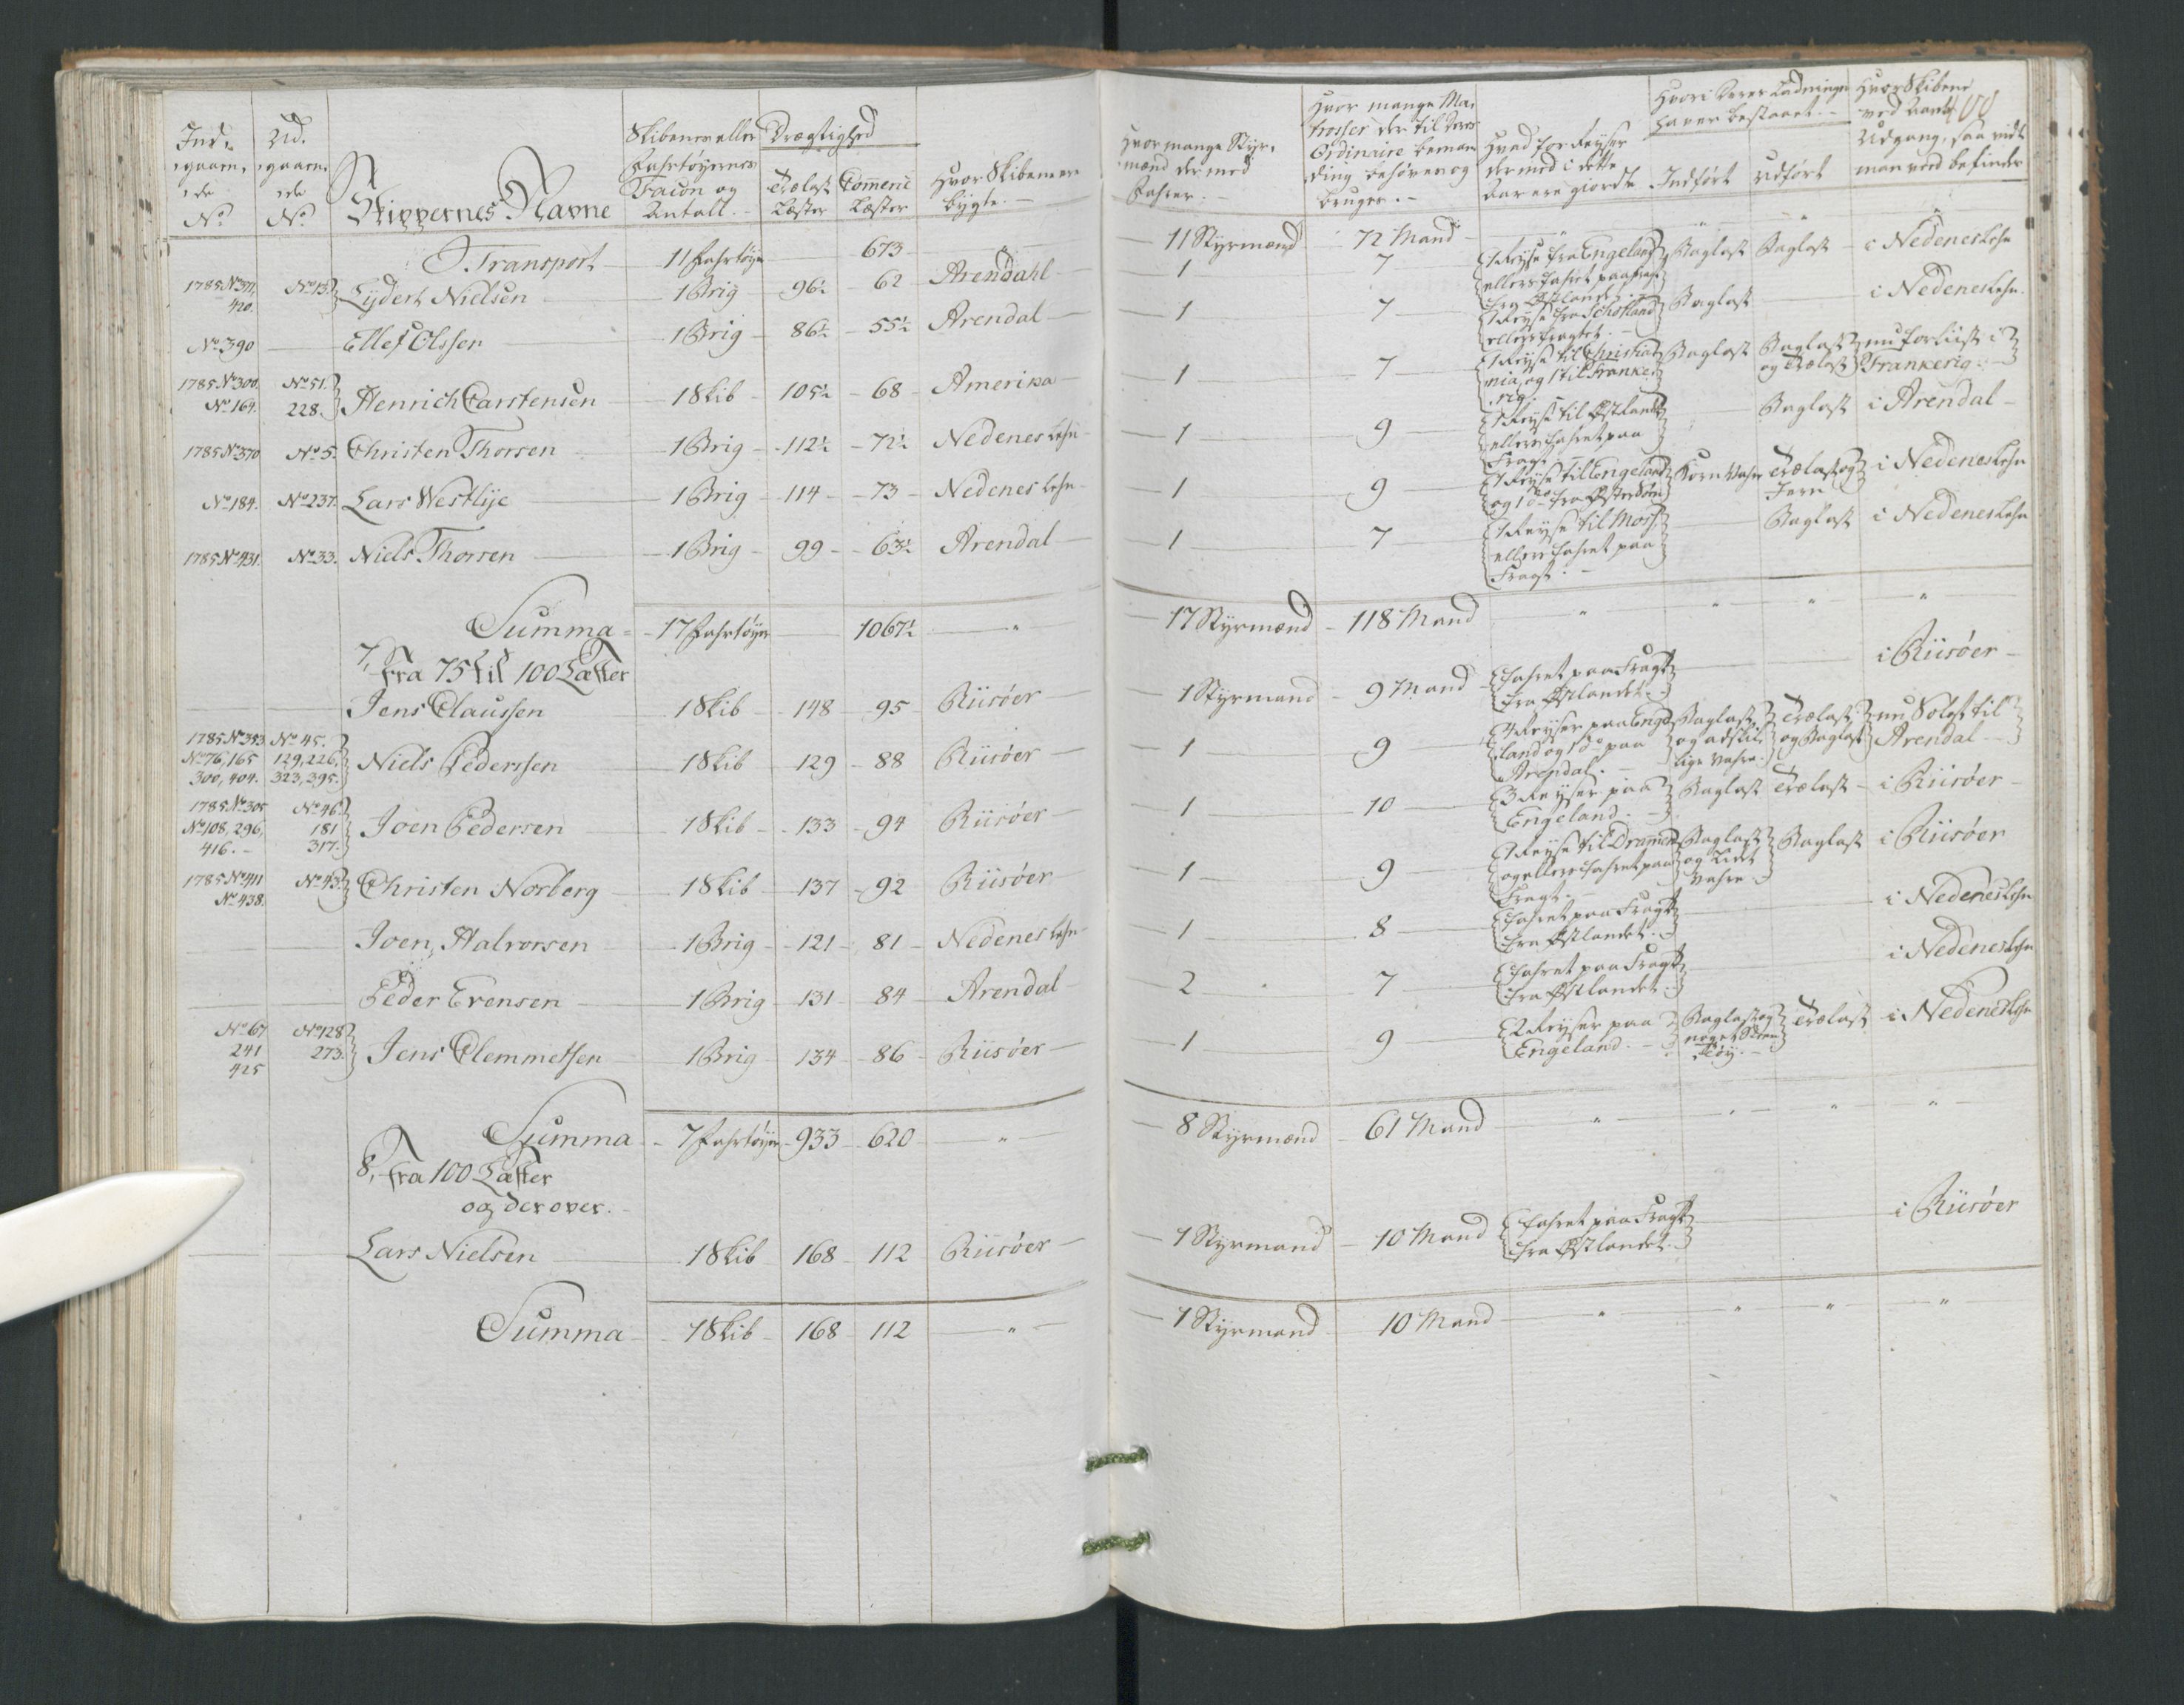 Ind- Ud-
gaaen- gaaen-
de de
No. No.
Skippernes Navne
Skibenes eller
Fahrtøyernes
Facon og
Antall.
Drægtighed
Trælast Læster
Commerce Læster
Hvor Skibene ere
bygte.
Hvor mange Styr-
mænd der med
Fahrer.
Hvor mange Ma-
trosser der til deres
Ordinaire beman-
ding behøves og
bruges.
Hvad for Reyser
der med i dette
Aar ere giorde
Hvori deres Ladninger
haver bestaaet.
Indført Udført
Hvor Skibene
ved Aarets
Udgang, saa vidt
man veed befinder
Transport 11 Fahrtøyer 673 11 Styrmænd 72 Mand
1785 No. 371, 420. No. 13. Lydert Nielsen 1 Brig 96½ 62 Arendahl 1 7 1 Reyse fra Engeland ellers fahret paa fragt fra Østlandet. Baglast Baglast i Nedenes Lehn
No. 390 Ellef Olssen 1 Brig 86½ 55½ Arendal 1 7 1 Reyse fra Schotland ellers fragtet. Baglast i Nedenes Lehn.
1785 No. 300. No. 164. No. 51. 228. Henrich Carstensen 1 Skib 105½ 68 Amerika 1 7 1 Reyse til Christia- nia, og 1 til Franke- rig. Baglast Baglast og Trælast nu forliist i Frankerig.
1785 No. 370 No. 5. Christen Thorsen 1 Brig 112½ 72½ Nedenes Lehn 1 9 1 Reyse til Østlandet ellers fahret paa Fragt. Baglast i Arendal
No. 184. No. 237. Lars Westlye 1 Brig 114 73 Nedenes Lehn 1 9 1 Reyse til Engeland og 1 do. fra Østersøen Korn Vahre Trælast og Jern i Nedenes Lehn
1785 No. 431. No. 33. Niels Thorsen 1 Brig 99 63½ Arendal 1 7 1 Reyse til Moss, ellers fahret paa Fragt. Baglast i Nedenes Lehn
Summa 17 Fahrtøyer 1067½ " 17 Styrmænd 118 Mand " " " "
7, Fra 75 til 100 Læster
Jens Claussen 1 Skib 148 95 Riisøer 1 Styrmand 9 Mand fahret paa Fragt fra Østlandet. i Riisøer
1785 No. 353. No. 76, 165 300, 404. No. 45. 129, 226, 323, 395. Niels Pederssen 1 Skib 129 88 Riisøer 1 9 4 Reyser paa Enge- land og 1 do. paa Arendal. Baglast og adskil- lige Vahre. Trælast og Baglast nu Solgt til Arendal
1785 No. 305 No. 108, 296, 416. No. 46. 181 317. Joen Pedersen 1 Skib 133 94 Riisøer 1 10 3 Reyser paa Engeland. Baglast Trælast i Riisøer
1785 No. 411 No. 438. No. 43. Christen Norberg 1 Skib 137 92 Riisøer 1 9 1 Reyse til Drammen og ellers fahret paa Fragt. Baglast og lidet Vahre Baglast i Riisøer
Joen Halvorsen 1 Brig 121 81 Nedenes Lehn 1 8 fahret paa Fragt fra Østlandet. i Nedenes Lehn
Peder Evensen 1 Brig 131 84 Arendal 2 7 fahret paa Fragt fra Østlandet. i Nedenes Lehn
No. 67 241 425 No. 128 273. Jens Clemmetsen 1 Brig 134 86 Riisøer 1 9 2 Reyser paa Engeland. Baglast og noget Steen Tøy. Trælast i Nedenes Lehn
Summa 7 Fahrtøyer 933 620 " 8 Styrmænd 61 Mand " " " "
8, Fra 100 Læster
og derover.
Lars Nielsen 1 Skib 168 112 Riisøer 1 Styrmand 10 Mand fahret paa Fragt fra Østlandet. i Riisøer
Summa 1 Skib 168 112 " 1 Styrmand 10 Mand " " " "